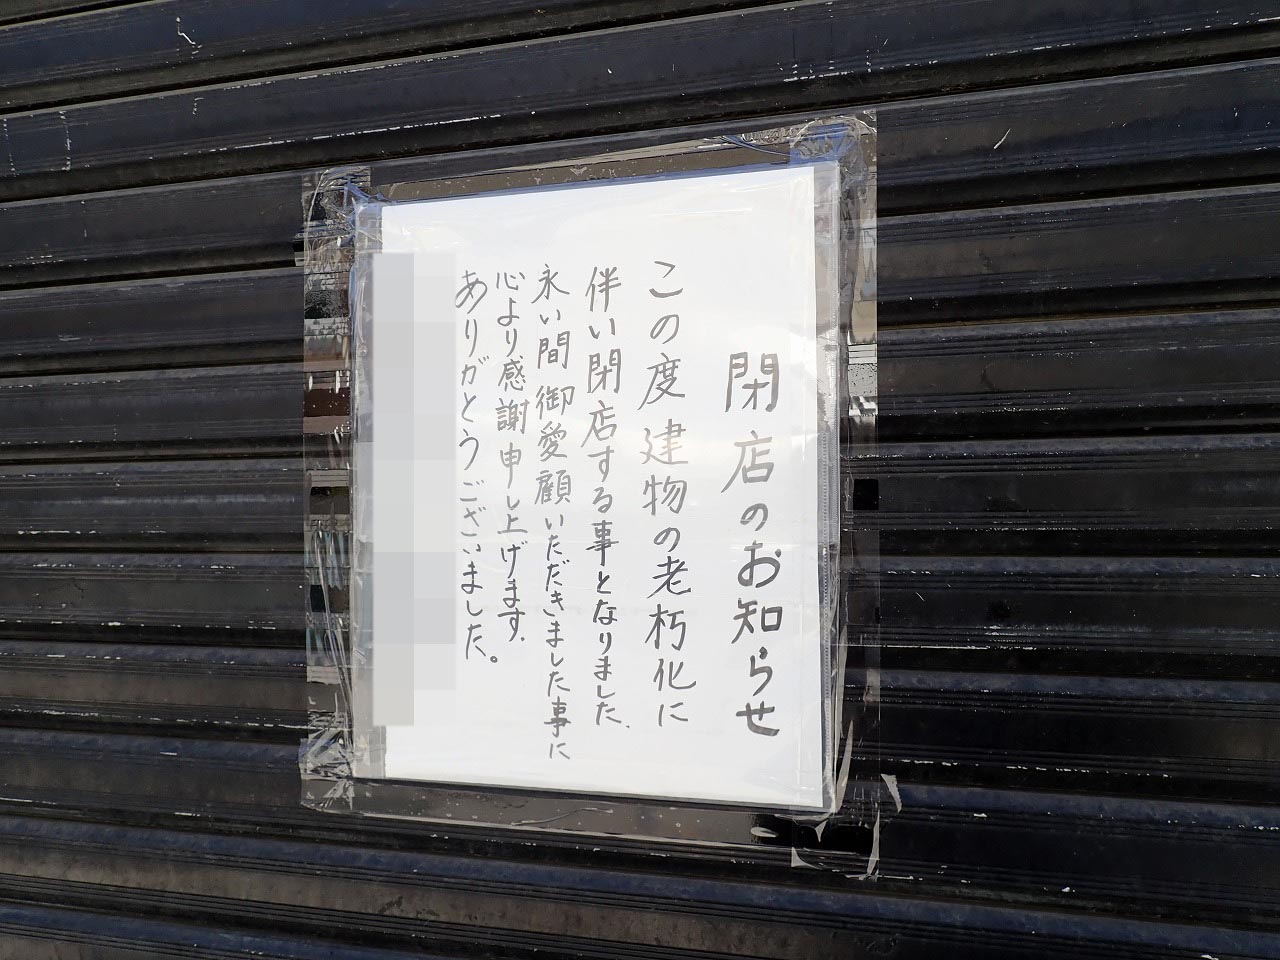 閉店のお知らせ
この度建物の老朽化に
伴い閉店する事となりました、
永い間御愛顧いただきました事に
心より感謝申し上げます、
ありがとうございました。